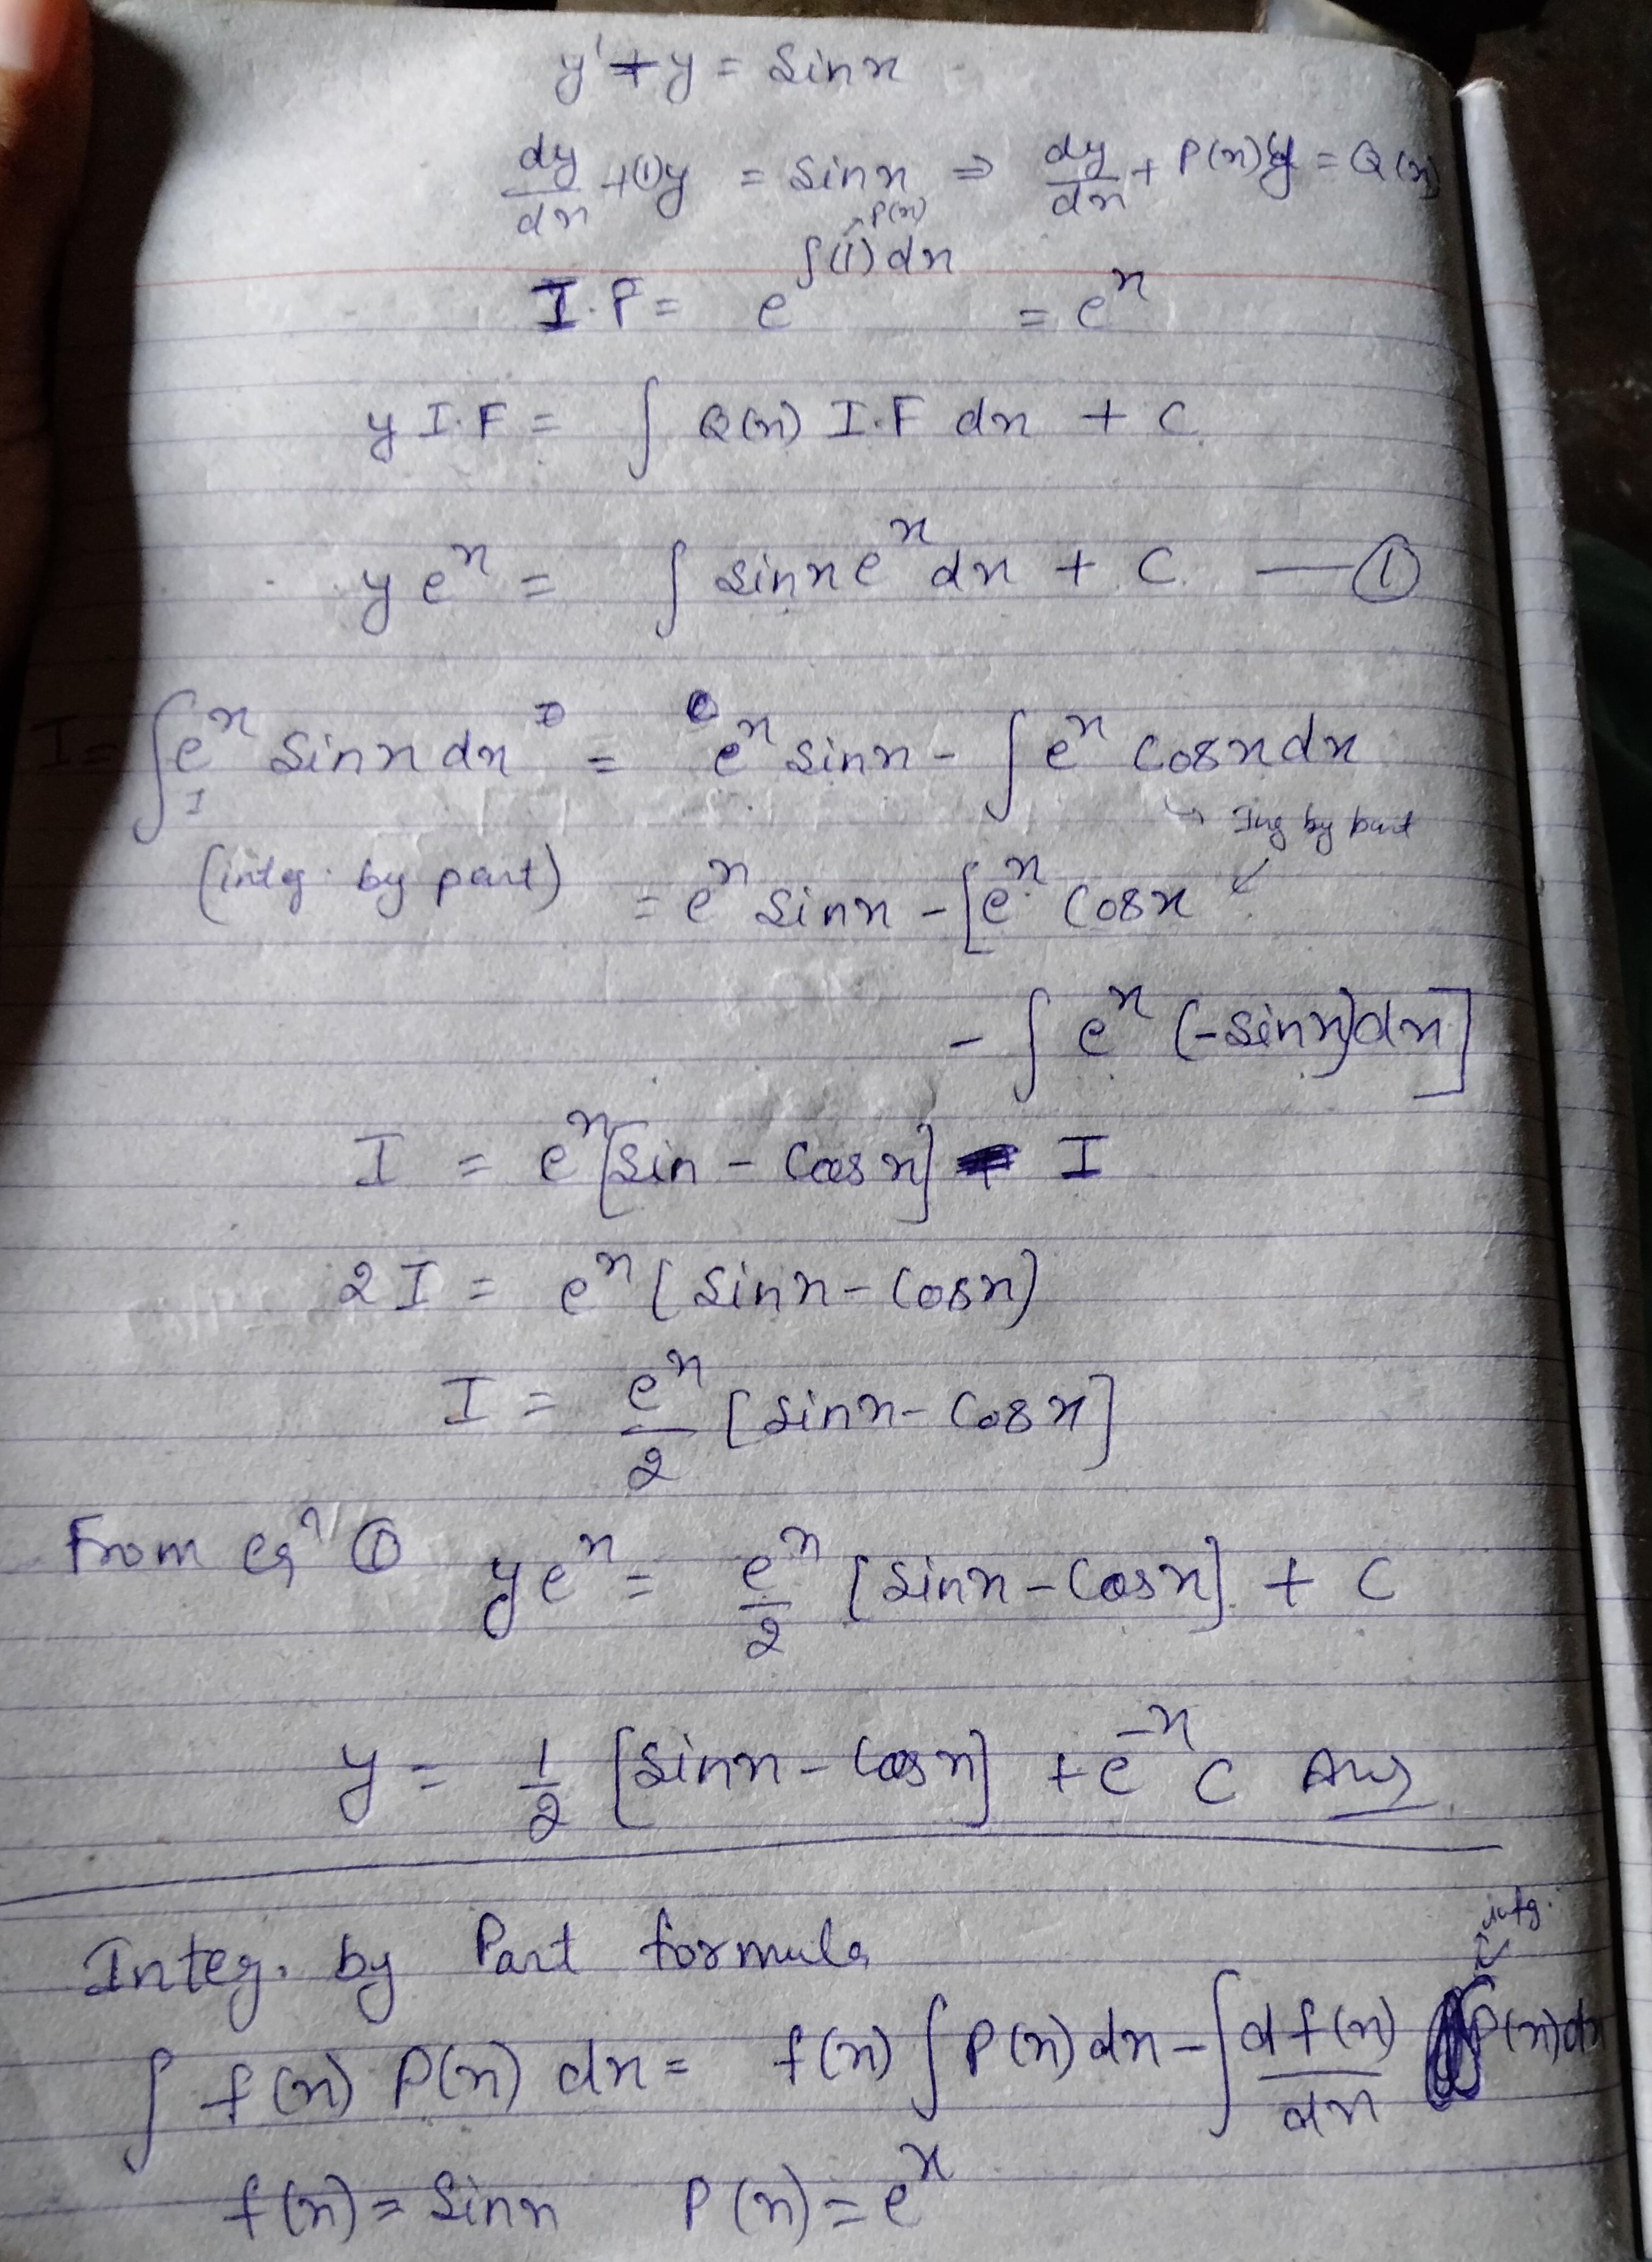 y' + y = sinx
dy/dx + (1)y = sinx ⇒ dy/dx + P(x)y = Q(x)
→P(x)
I.F = e^∫(1)dx = e^x
y I.F = ∫ Q(x) I.F dx + C
y e^x = ∫ sinx e^x dx + C — ①
I = ∫ e^x sinx dx = e^x sinx - ∫ e^x cosx dx
I
→ Ing by part
(integ. by part) = e^x sinx - [e^x cosx
- ∫ e^x (-sinx)dx]
I = e^x [sin - cosx] - I
2I = e^x (sinx - cosx)
I = e^x/2 [sinx - cosx]
From eq^n ① ye^x = e^x/2 [sinx - cosx] + C
y = 1/2 [sinx - cosx] + e^-x C Ans
Integ. by Part formula
intg.
∫ f(x) P(x) dx = f(x) ∫ P(x) dx - ∫ df(x)/dx ∫P(x)dx
f(x) = sinx P(x) = e^x